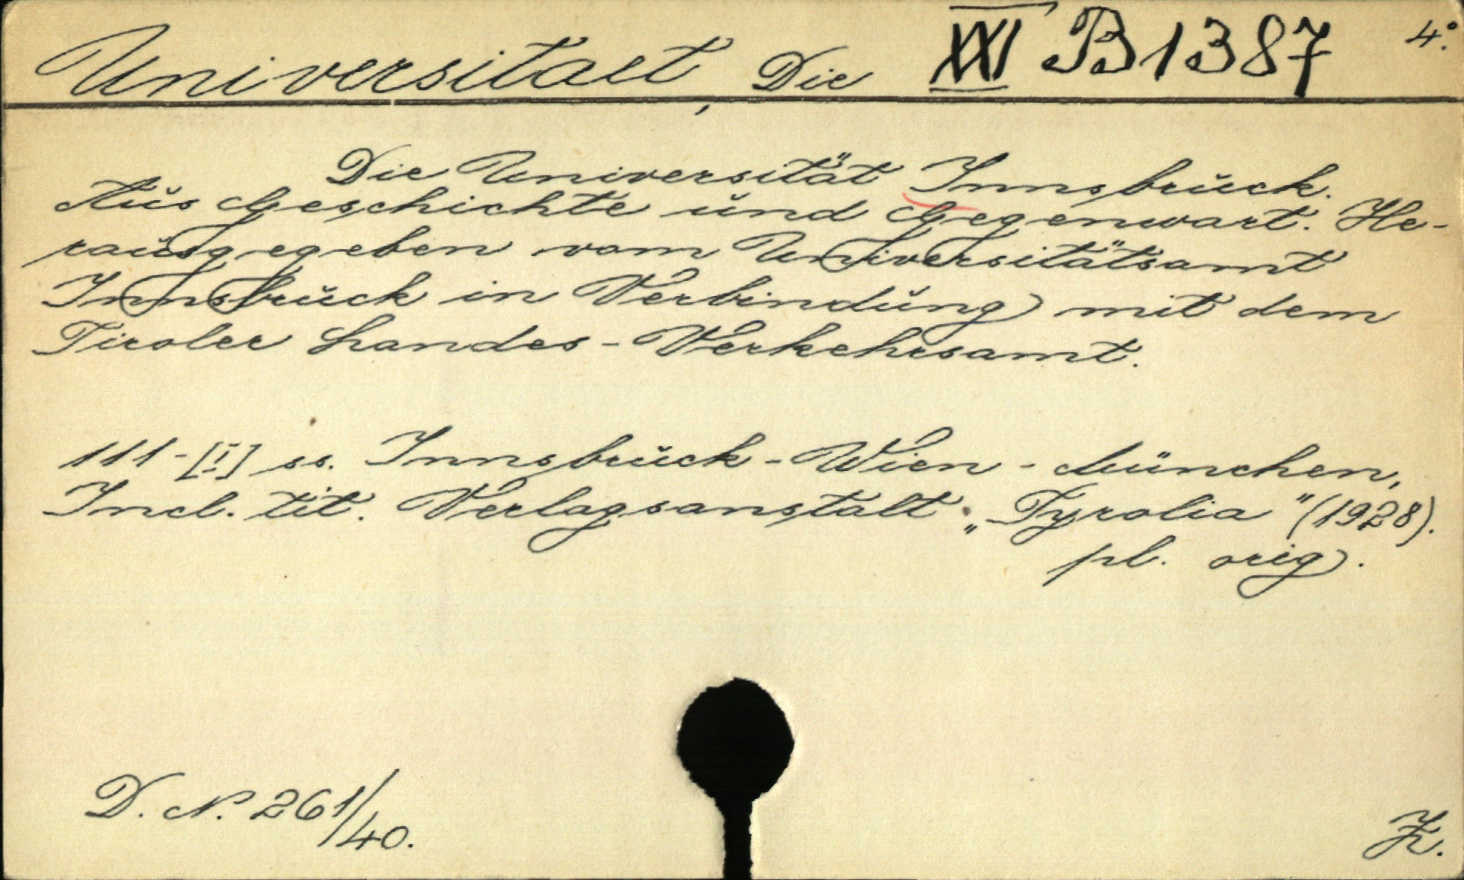 Universitaet, Die XXI B 1387 4°.
Die Universität Innsbrŭck.
Aŭs Geschichte ŭnd Gegenwart. He-
raŭsgegeben vom Universitätsamt
Innsbrŭck in Verbindŭng mit dem
Tiroler Landes-Verkehrsamt.
111-[I] ss. Innsbrŭck-Wien-München,
Incl. tit. Verlagsanstalt „Tyrolia" (1928).
pl. orig.
D. N. 261/40.